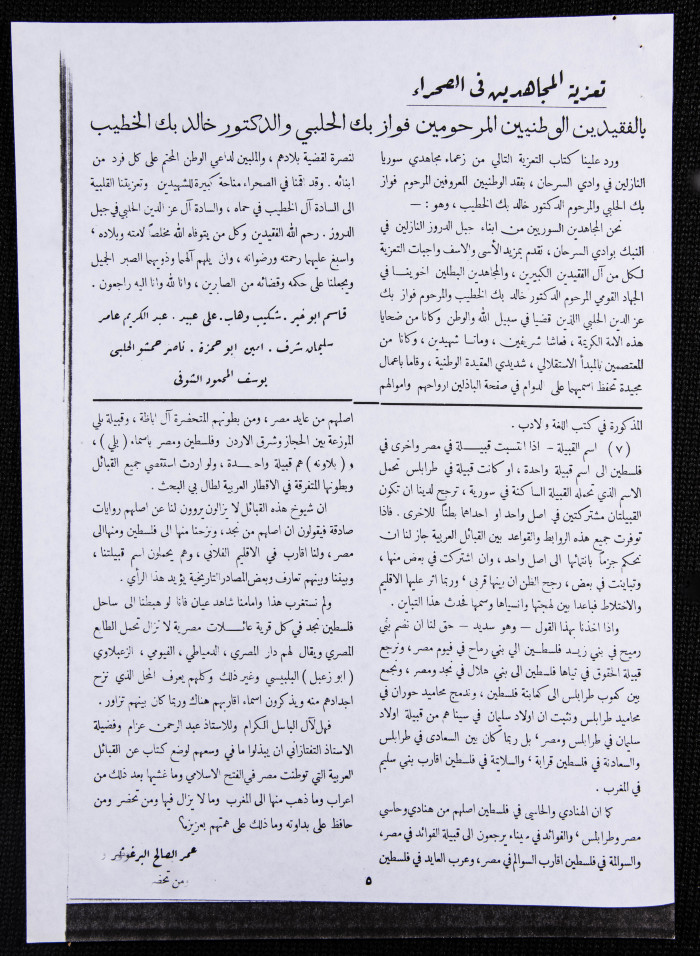 تعزية المجاهدين في الصحراء
بالفقيدين الوطنيين المرحومين فواز بك الحلبي والدكتور خالد بك الخطيب
ورد علينا كتاب التعزية التالي من زعماء مجاهدي سوريا
النازلين في وادي السرحان ، بفقد الوطنيين المعروفين المرحوم فواز
بك الحلبي والمرحوم الدكتور خالد بك الخطيب ، وهو : —
نحن المجاهدين السوريين من ابناء جبل الدروز النازلين في
النبك بوادي السرحان ، نقدم بمزيد الأسى والاسف واجبات التعزية
لكل من آل الفقيدين الكبيرين ، والمجاهدين البطلين اخوينا في
الجهاد القومي المرحوم الدكتور خالد بك الخطيب والمرحوم فواز بك
عز الدين الحلبي اللذين قضيا في سبيل الله والوطن وكانا من ضحايا
هذه الامة الكريمة ، فعاشا شريفين ، وماتا شهيدين ، وكانا من
المعتصمين بالمبدأ الاستقلالي ، شديدي العقيدة الوطنية ، وقاما باعمال
مجيدة تحفظ اسميهما على الدوام في صفحة الباذلين ارواحهم واموالهم
لنصرة لقضية بلادهم ، والملبين لداعي الوطن المحتم على كل فرد من
ابنائه . وقد اقمنا في الصحراء مناحة كبيرة للشهيدين وتعزيتنا القلبية
الى السادة آل الخطيب في حماه ، والسادة آل عز الدين الحلبي في جبل
الدروز . رحم الله الفقيدين وكل من يتوفاه الله مخلصاً لامته وبلاده ،
واسبغ عليهما رحمته ورضوانه ، وان يلهم آلهما وذويهما الصبر الجميل
ويجعلنا على حكمه وقضائه من الصابرين ، وانا لله وانا اليه راجعون .
قاسم ابو خير . شكيب وهاب . علي عبيد . عبد الكريم عامر
سليمان شرف . امين ابو حمزة . ناصر حمشو الحلبي
يوسف المحمود الشوفي
المذكورة في كتب اللغة والادب .
(٧) اسم القبيلة – اذا انتسبت قبيلة في مصر واخرى في
فلسطين الى اسم قبيلة واحدة ، او كانت قبيلة في طرابلس تحمل
الاسم الذي تحمله القبيلة الساكنة في سورية ، ترجح لدينا ان تكون
القبيلتان مشتركتين في اصل واحد او احداهما بطناً للاخرى . فاذا
توفرت جميع هذه الروابط والقواعد بين القبائل العربية جاز لنا ان
نحكم جزماً بانتهائها الى اصل واحد ، وان اشتركت في بعض منها ،
وتباينت في بعض ، رجح الظن ان بينها قربى ، وربما اثر عليها الاقليم
والاختلاط فباعدا بين لهجتها وانسابها وسمها فحدث هذا التباين .
واذا اخذنا بهذا القول – وهو سديد – حق لنا ان نضم بني
رميح في بني زيد فلسطين الى بني رماح في فيوم مصر ، ونرجع
قبيلة الحقوق في تياها فلسطين الى بني هلال في نجد ومصر ، ونجمع
بين كعوب طرابلس الى كعابنة فلسطين ، وندمج محاميد حوران في
محاميد طرابلس ونثبت ان اولاد سليمان في سينا هم من قبيلة اولاد
سليمان في طرابلس ومصر ، بل ربما كان بين السعادى في طرابلس
والسعادنة في فلسطين قرابة ، والسلايتة في فلسطين اقارب بني سليم
في المغرب .
كما ان الهنادي والحاسي في فلسطين اصلهم من هنادي وحاسي
مصر وطرابلس ، والفوائد في سيناء يرجعون الى قبيلة الفوائد في مصر ،
والسوالمة في فلسطين اقارب السوالم في مصر ، وعرب العايد في فلسطين
اصلهم من عايد مصر ، ومن بطونهم المتحضرة آل اباظة ، وقبيلة بلي
الموزعة بين الحجاز وشرق الاردن وفلسطين ومصر باسماء (بلي) ،
و (بلاونه) هم قبيلة واحدة ، ولو اردت استقصي جميع القبائل
وبطونها المتفرقة في الاقطار العربية لطال بي البحث .
ان شيوخ هذه القبائل لا يزالون يروون لنا عن اصلهم روايات
صادقة فيقولون ان اصلهم من نجد ، ونزحنا منها الى فلسطين ومنها الى
مصر ، ولنا اقارب في الاقليم الفلاني ، وهم يحملون اسم قبيلتنا ،
وبيننا وبينهم تعارف وبعض المصادر التاريخية يؤيد هذا الرأي .
ولم نستغرب هذا وامامنا شاهد عيان فانا لو هبطنا الى ساحل
فلسطين نجد في كل قرية عائلات مصرية لا تزال تحمل الطابع
المصري ويقال لهم دار المصري ، الدمياطي ، الفيومي ، الزعبلاوي
(ابو زعبل) البلبيسي وغير ذلك وكلهم يعرف المحل الذي نزح
اجدادهم منه ويذكرون اسماء اقاربهم هناك وربما كان بينهم تزاور .
فهل لآل الباسل الكرام وللاستاذ عبد الرحمن عزام وفضيلة
الاستاذ التفتازاني ان يبذلوا ما في وسعهم لوضع كتاب عن القبائل
العربية التي توطنت مصر في الفتح الاسلامي وما غشيها بعد ذلك من
اعراب وما ذهب منها الى المغرب وما لا يزال فيها ومن تحضر ومن
حافظ على بداوته وما ذلك على همتهم بعزيز ؟
عمر الصالح البرغوثي
٥